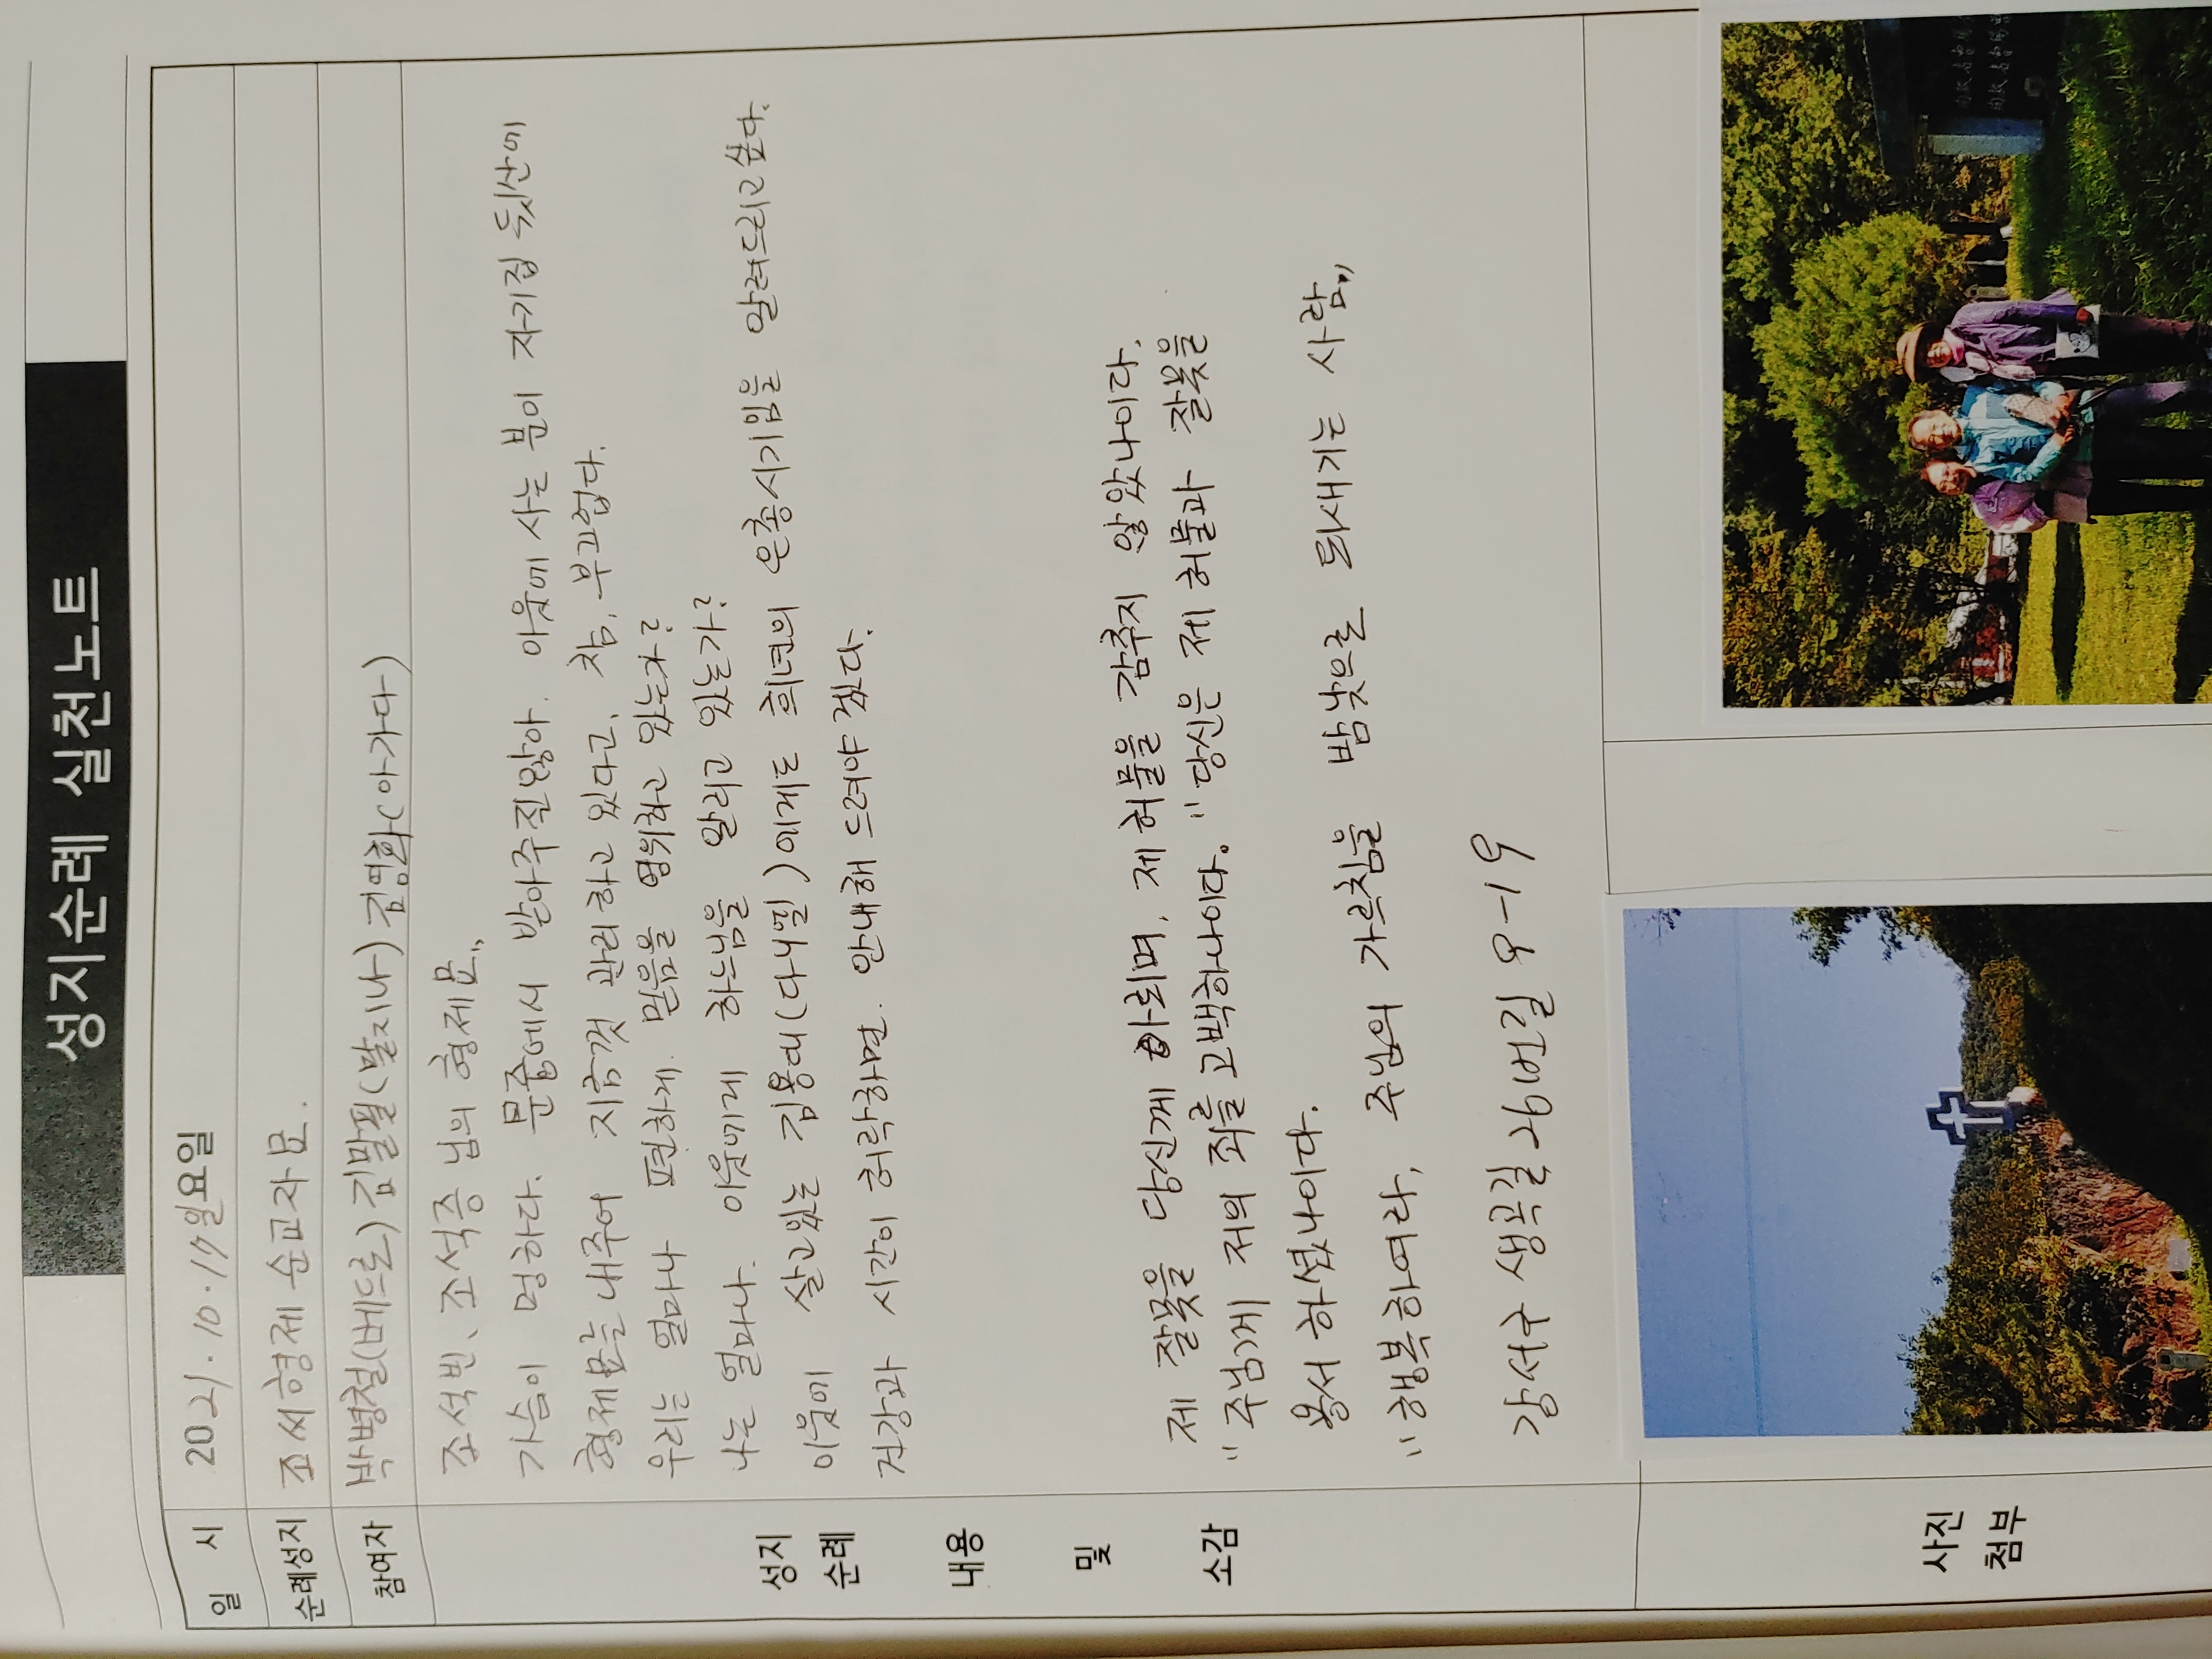 성지순례 실천노트
일 시 2021. 10. 17 일요일
순례성지 조씨형제 순교자묘.
참여자 박병철(베드로) 김말필(말지나) 김영화(아가다)
성지
순례
내용
및
소감
조석빈、조석증 님의 형제묘.,
가슴이 멍하다. 문중에서 받아주질않아. 이웃에 사는 분이 자기집 뒷산에
형제묘를 내주어 지금껏 관리하고 있다고, 참, 부끄럽다.
우리는 얼마나 편하게. 믿음을 영위하고 있는가?
나는 얼마나. 이웃에게 하느님을 알리고 있는가?
이웃에 살고있는 김용대(다니엘)에게도 희년의 은총시기임을 알려드리고싶다.
건강과 시간이 허락하면. 안내해 드려야겠다.
제 잘못을 당신께 아뢰며, 제 허물을 감추지 않았나이다.
"주님께 저의 죄를 고백하나이다. "당신은 제 허물과 잘못을
용서 하셨나이다.
"행복하여라, 주님의 가르침을 밤낮으로 되새기는 사람.,,
강서구 생곡길26번길 9-19
사진
첨부